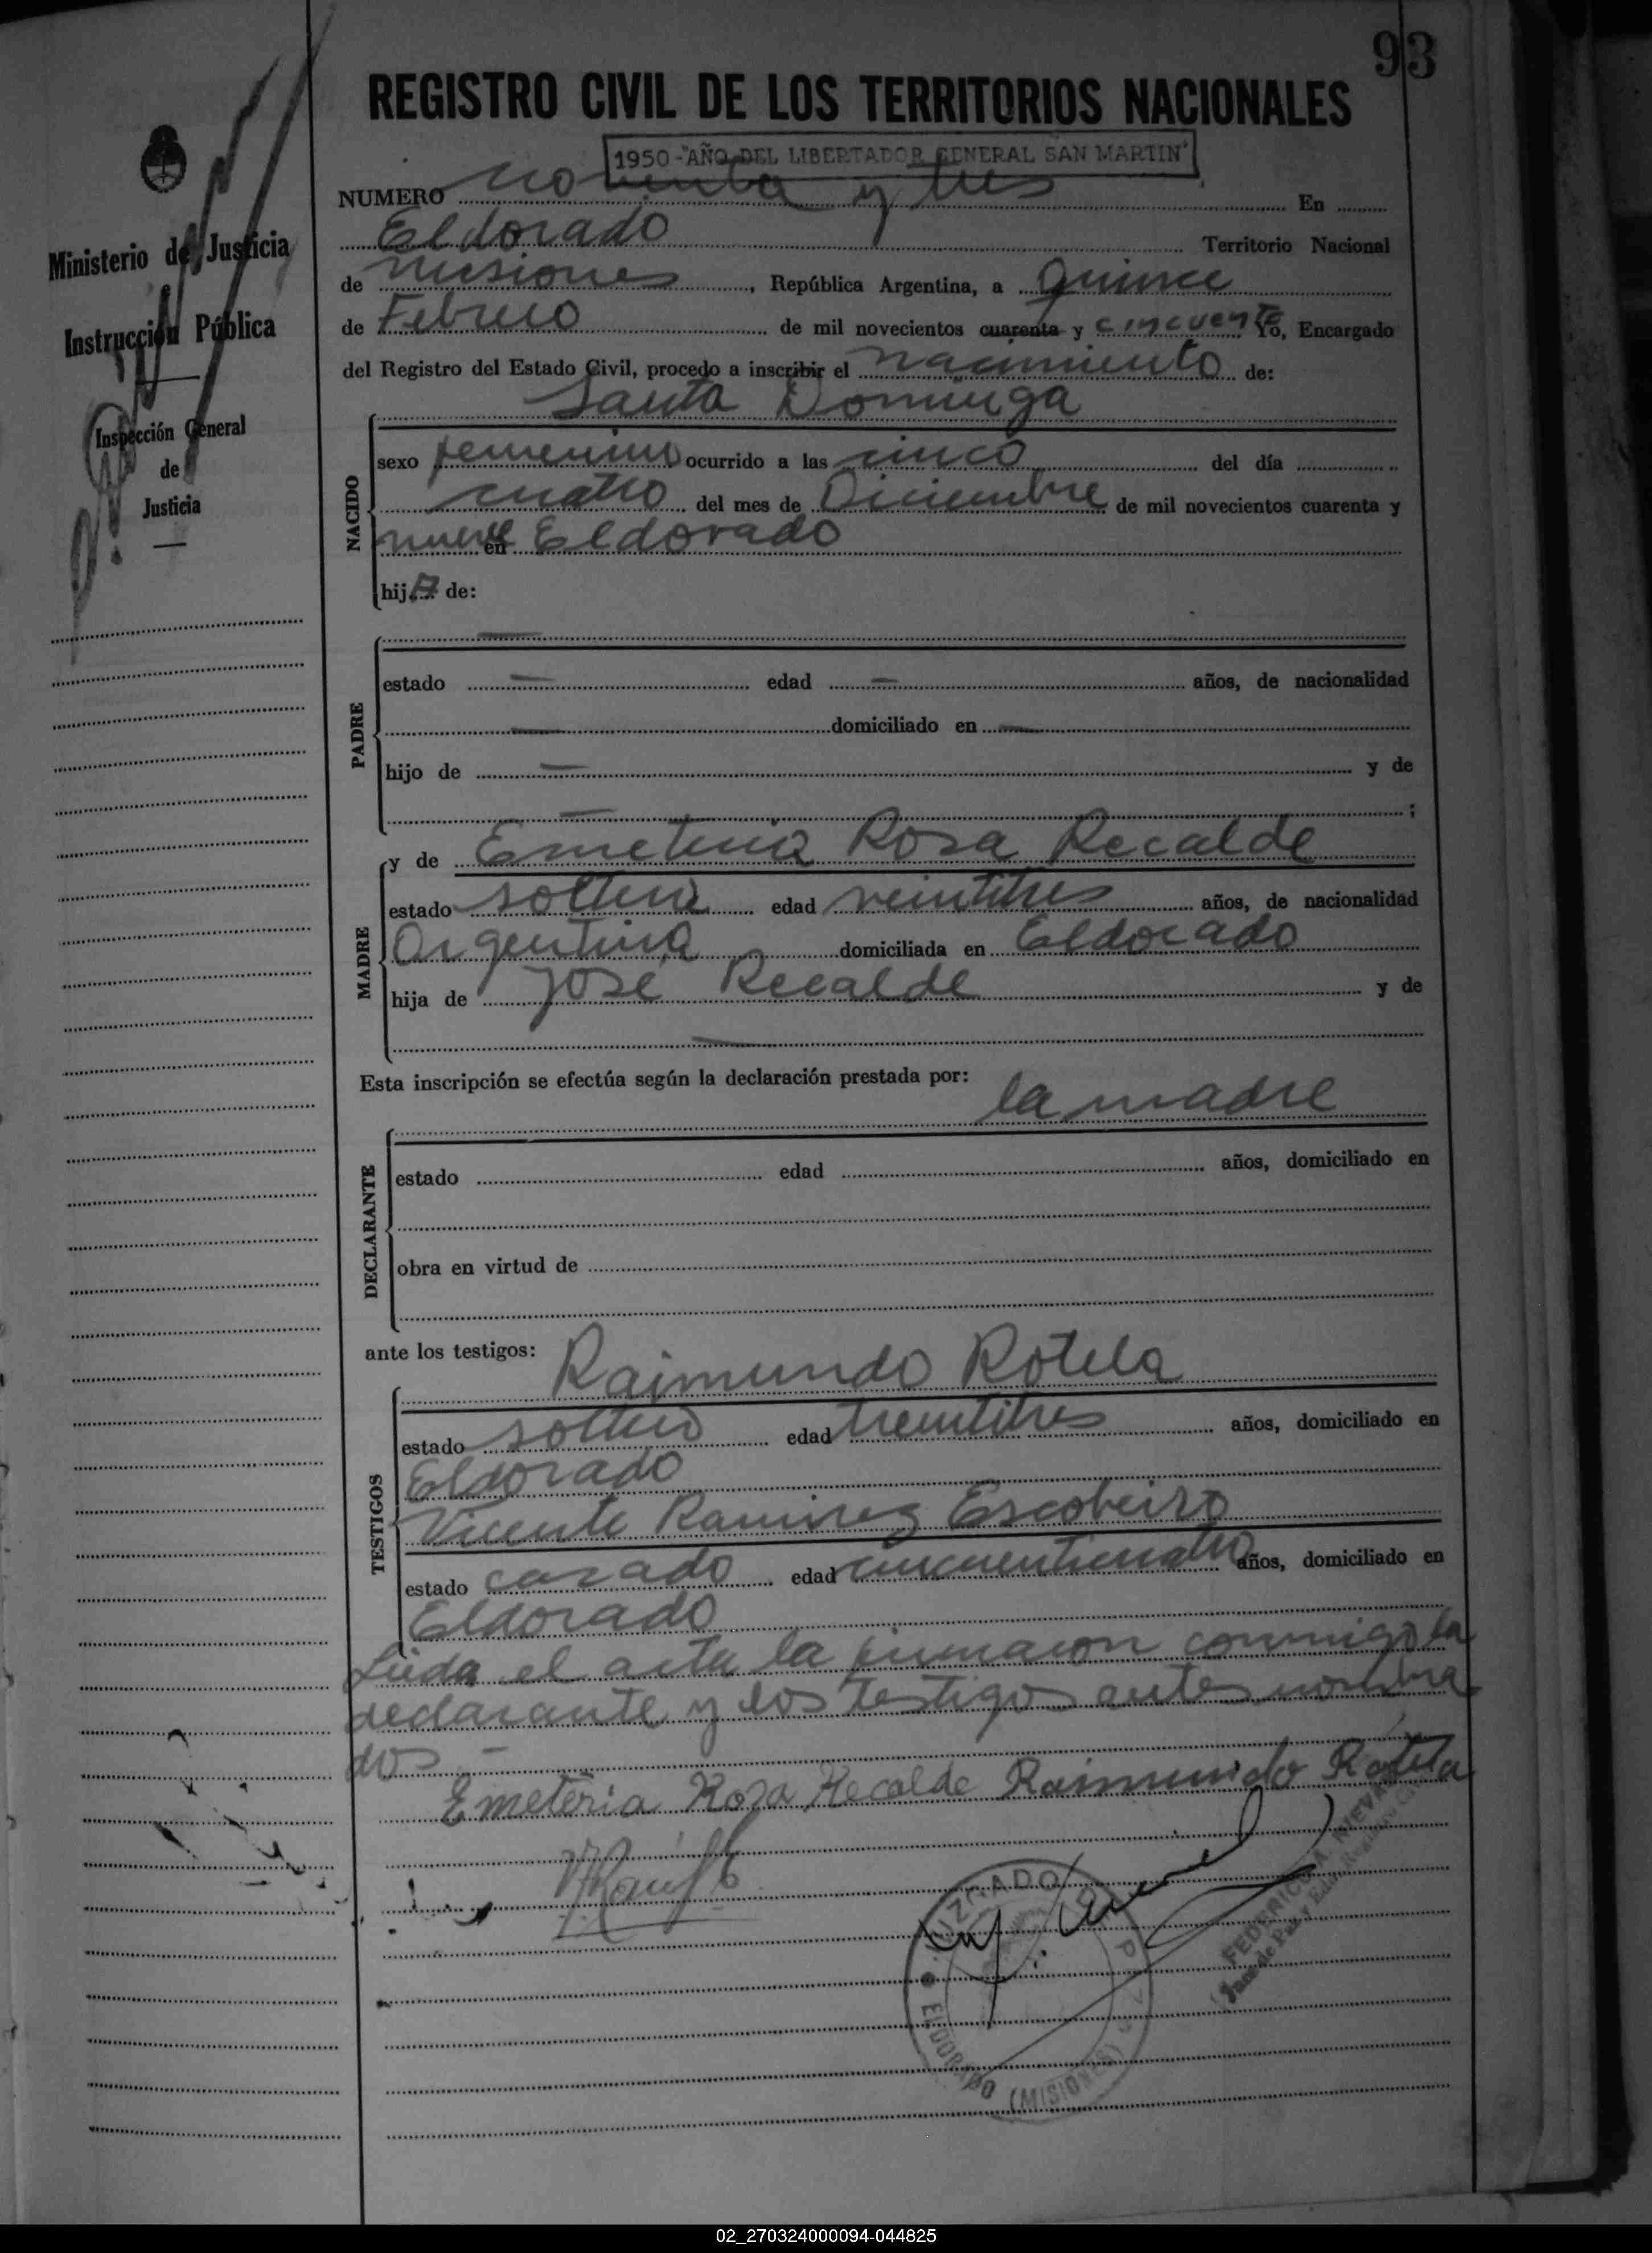 93
REGISTRO CIVIL DE LOS TERRITORIOS NACIONALES
1950-"AÑO DEL LIBERTADOR GENERAL SAN MARTIN"
NUMERO noventa y tres En
Eldorado Territorio Nacional
de misiones, República Argentina, a quince
de Febrero de mil novecientos cuarenta y cincuenta Yo, Encargado
del Registro del Estado Civil, procedo a inscribir el nacimiento de:
Santa Dominga
NACIDO
sexo femenino ocurrido a las cinco del día
cuatro del mes de Diciembre de mil novecientos cuarenta y
nueve en Eldorado
hija de:
PADRE
estado — edad — años, de nacionalidad
— domiciliado en —
hijo de — y de
— ;
MADRE
y de Emeteria Rosa Recalde
estado soltera edad veintitres años, de nacionalidad
Argentina domiciliada en Eldorado
hija de José Recalde y de
—
Esta inscripción se efectúa según la declaración prestada por:
la madre
DECLARANTE
estado edad años, domiciliado en
obra en virtud de
ante los testigos:
Raimundo Rotela
TESTIGOS
estado soltero edad treintitres años, domiciliado en
Eldorado
Vicente Ramirez Escobeiro
estado casado edad cincuenticuatro años, domiciliado en
Eldorado
Lieda el acta la firmaron conmigo la
declarante y los testigos antes nombra
dos —
Emeteria Roza Recalde Raimundo Rotela
JUZGADO DE P
ELDORADO (MISIONES)
FEDERICO A. NUEVA
Juez de Paz y
Ministerio de Justicia
Instrucción Pública
Inspección General
de
Justicia
02_270324000094-044825